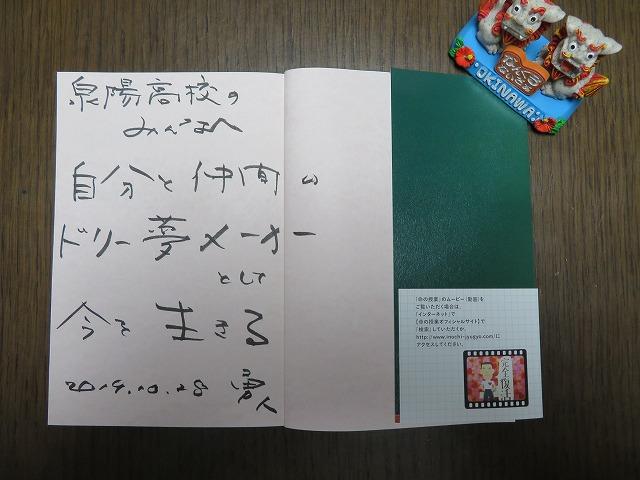 泉陽高校の
みんなへ
自分と仲間の
ドリー夢メーカー
として
今を生きる
2019.10.28
OKINAWA
「命の授業」のムービー(動画)を
ご覧いただく場合は、
「インターネット」で
【命の授業オフィシャルサイト】で
「検索」していただくか、
http://www.inochi-jyugyo.com/に
アクセスしてください。
完全復活